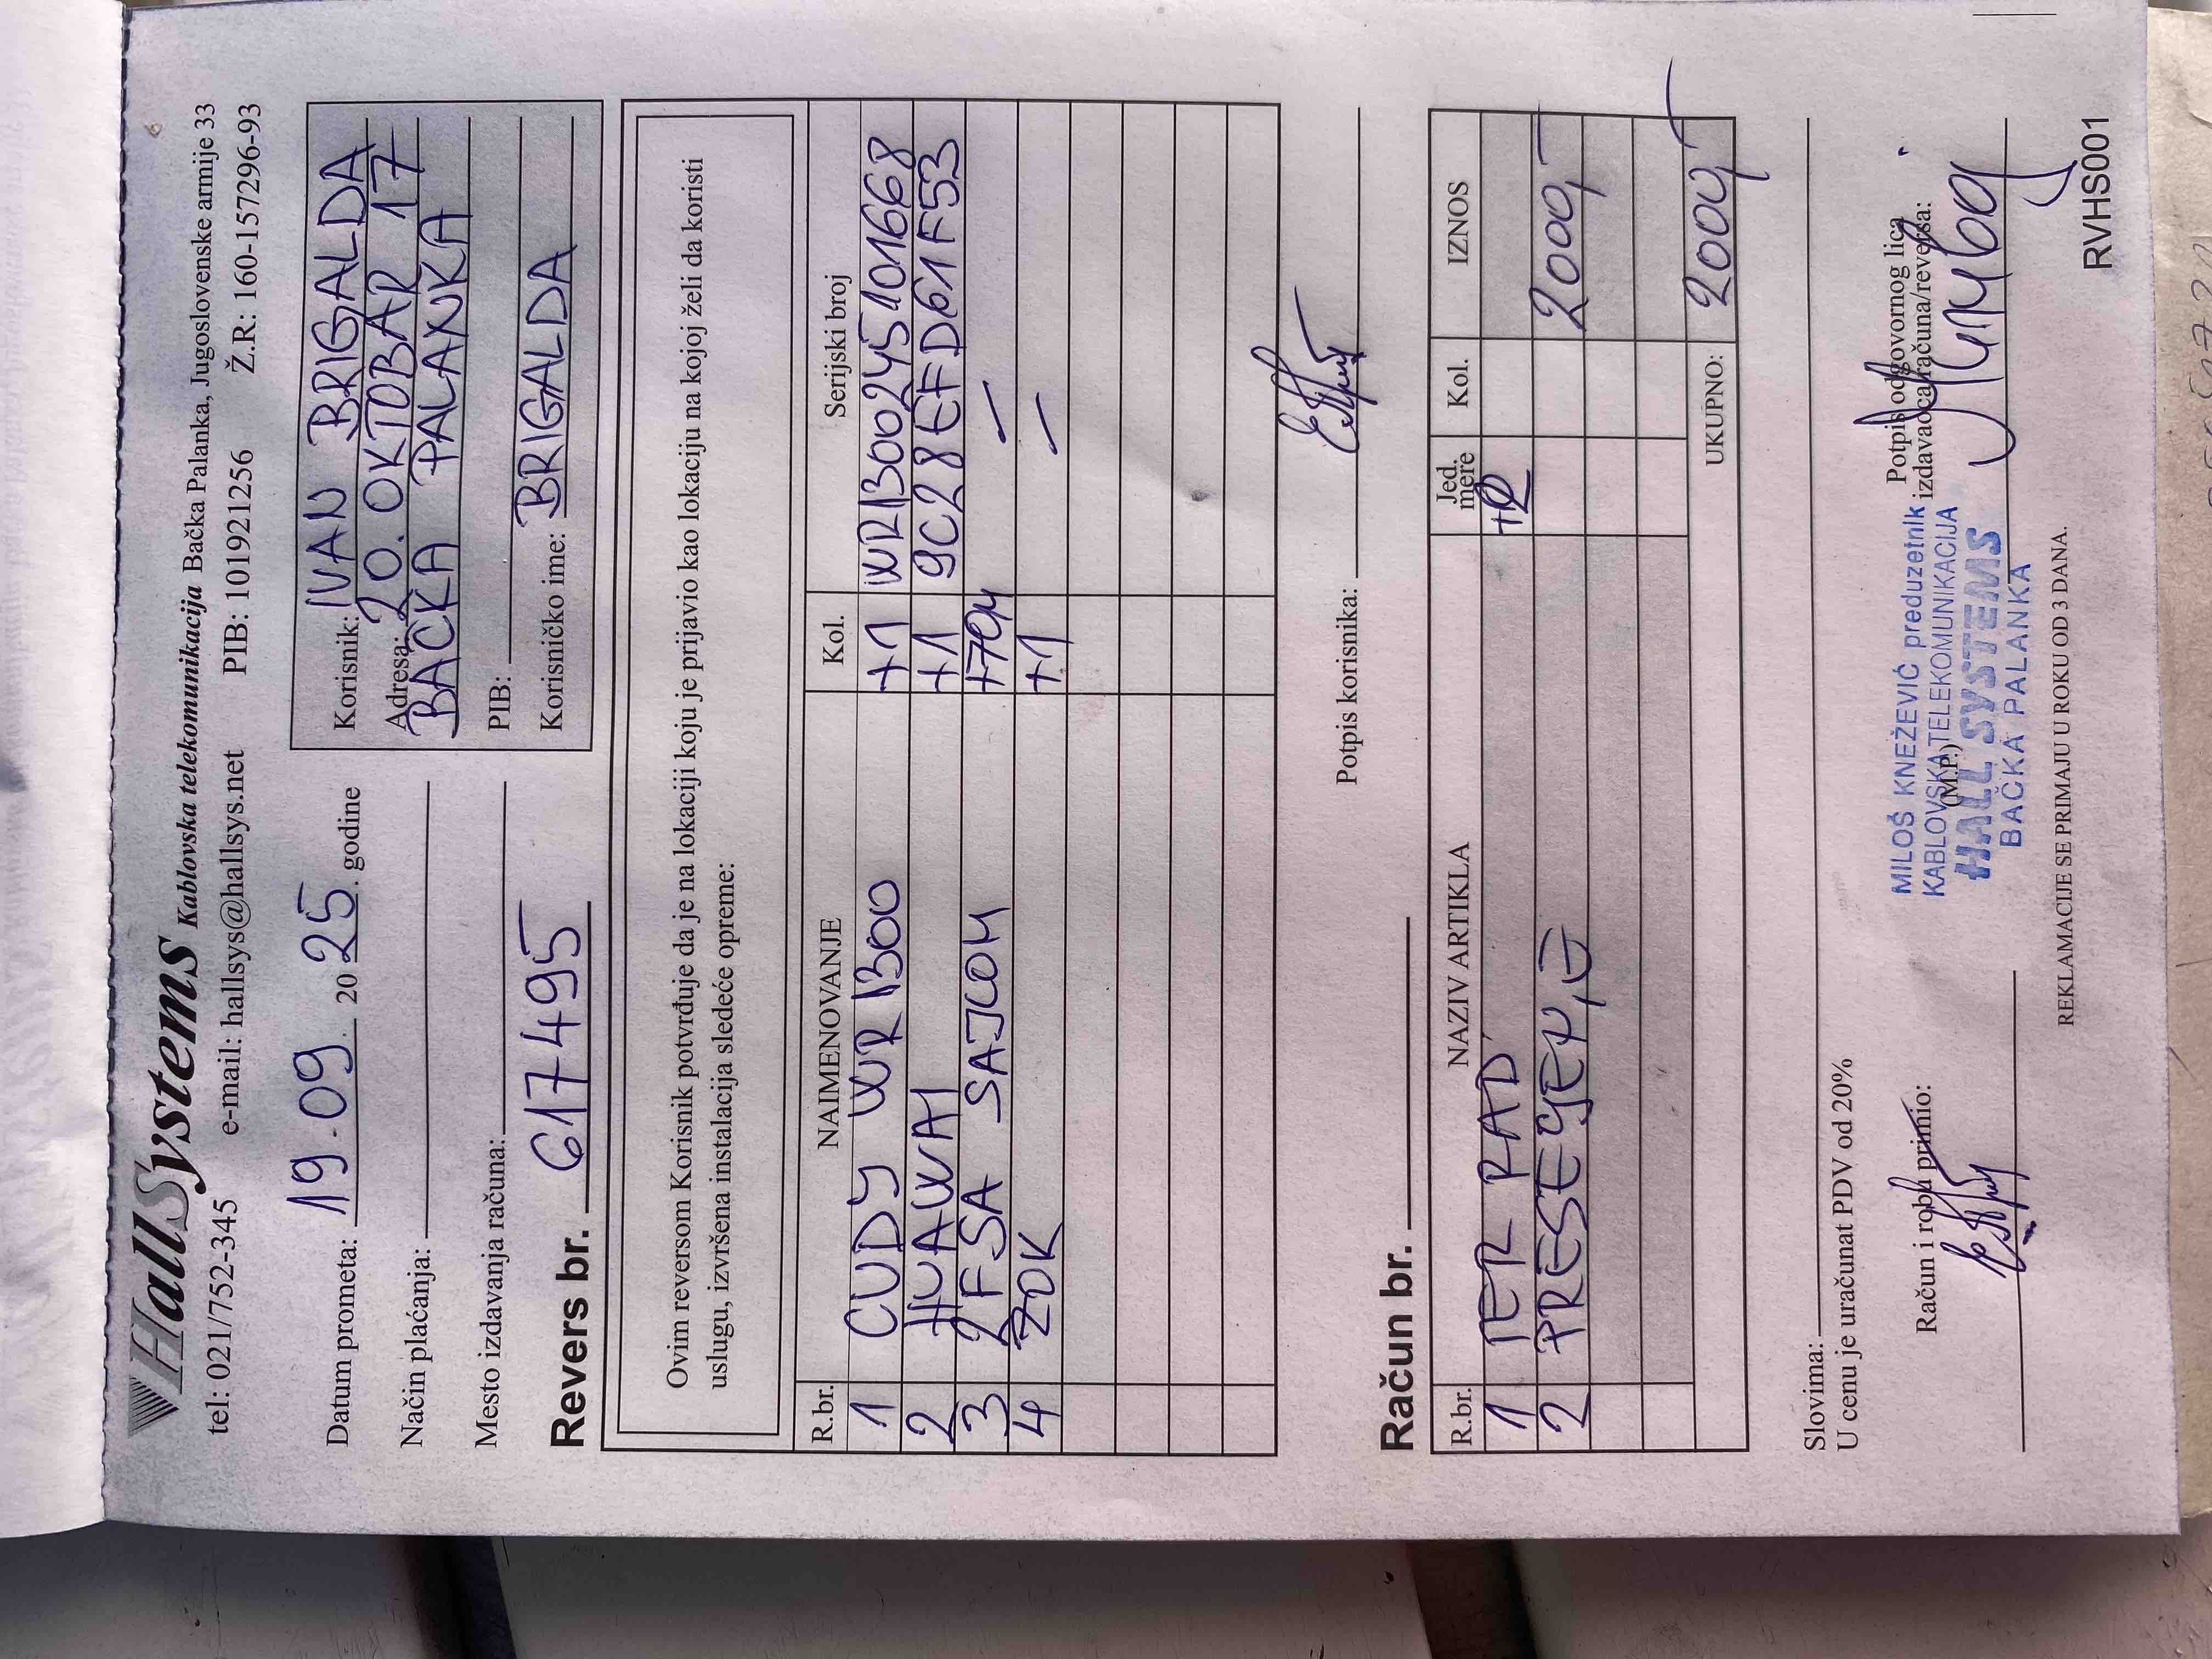 HallSystems Kablovska telekomunikacija Bačka Palanka, Jugoslovenske armije 33
tel: 021/752-345 e-mail: hallsys@hallsys.net PIB: 101921256 Ž.R: 160-157296-93
Datum prometa: 19.09. 2025. godine
Način plaćanja:
Mesto izdavanja računa:
Revers br. 617495
Korisnik: IVAN BRIGALDA
Adresa: 20. OKTOBAR 17
BACKA PALANKA
PIB:
Korisničko ime: BRIGALDA
Ovim reversom Korisnik potvrđuje da je na lokaciji koju je prijavio kao lokaciju na kojoj želi da koristi
uslugu, izvršena instalacija sledeće opreme:
R.br. NAIMENOVANJE Kol. Serijski broj
1 CUDY WR1300 +1 WR1300245101668
2 HUAWAI +1 9C28EFD61F53
3 2FSA SAJLOM —
4 ZOK +1 —
Potpis korisnika:
Račun br.
R.br. NAZIV ARTIKLA Jed. mere Kol. IZNOS
1 TER RAD
2 2000,-
UKUPNO: 2000,-
Slovima:
U cenu je uračunat PDV od 20%
Račun i robu primio:
Potpis odgovornog lica
izdavaoca računa/reversa:
(M.P.)
MILOŠ KNEŽEVIĆ preduzetnik
KABLOVSKA TELEKOMUNIKACIJA
HALL SYSTEMS
BAČKA PALANKA
REKLAMACIJE SE PRIMAJU U ROKU OD 3 DANA.
RVHS001